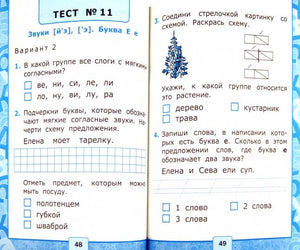 ТЕСТ № 11
Звуки [й'э], ['э]. Буква Е е
Вариант 2
1. В какой группе все слоги с мягкими
согласными?
ве, ни, си, ле, ли
ло, ну, ви, лу, ра
2. Подчеркни буквы, которые обозна-
чают мягкие согласные звуки. На-
черти схему предложения.
Елена моет тарелку.
Отметь предмет, которым можно
мыть посуду.
полотенцем
губкой
шваброй
48
3. Соедини стрелочкой картинку со
схемой. Раскрась схему.
Укажи, к какой группе относится
это растение.
дерево
кустарник
трава
4. Запиши слова, в написании кото-
рых есть буква е. Сколько в этом
предложении слов, где буква е
обозначает два звука?
Елена и Сева ели суп.
1 слово
2 слова
3 слова
49